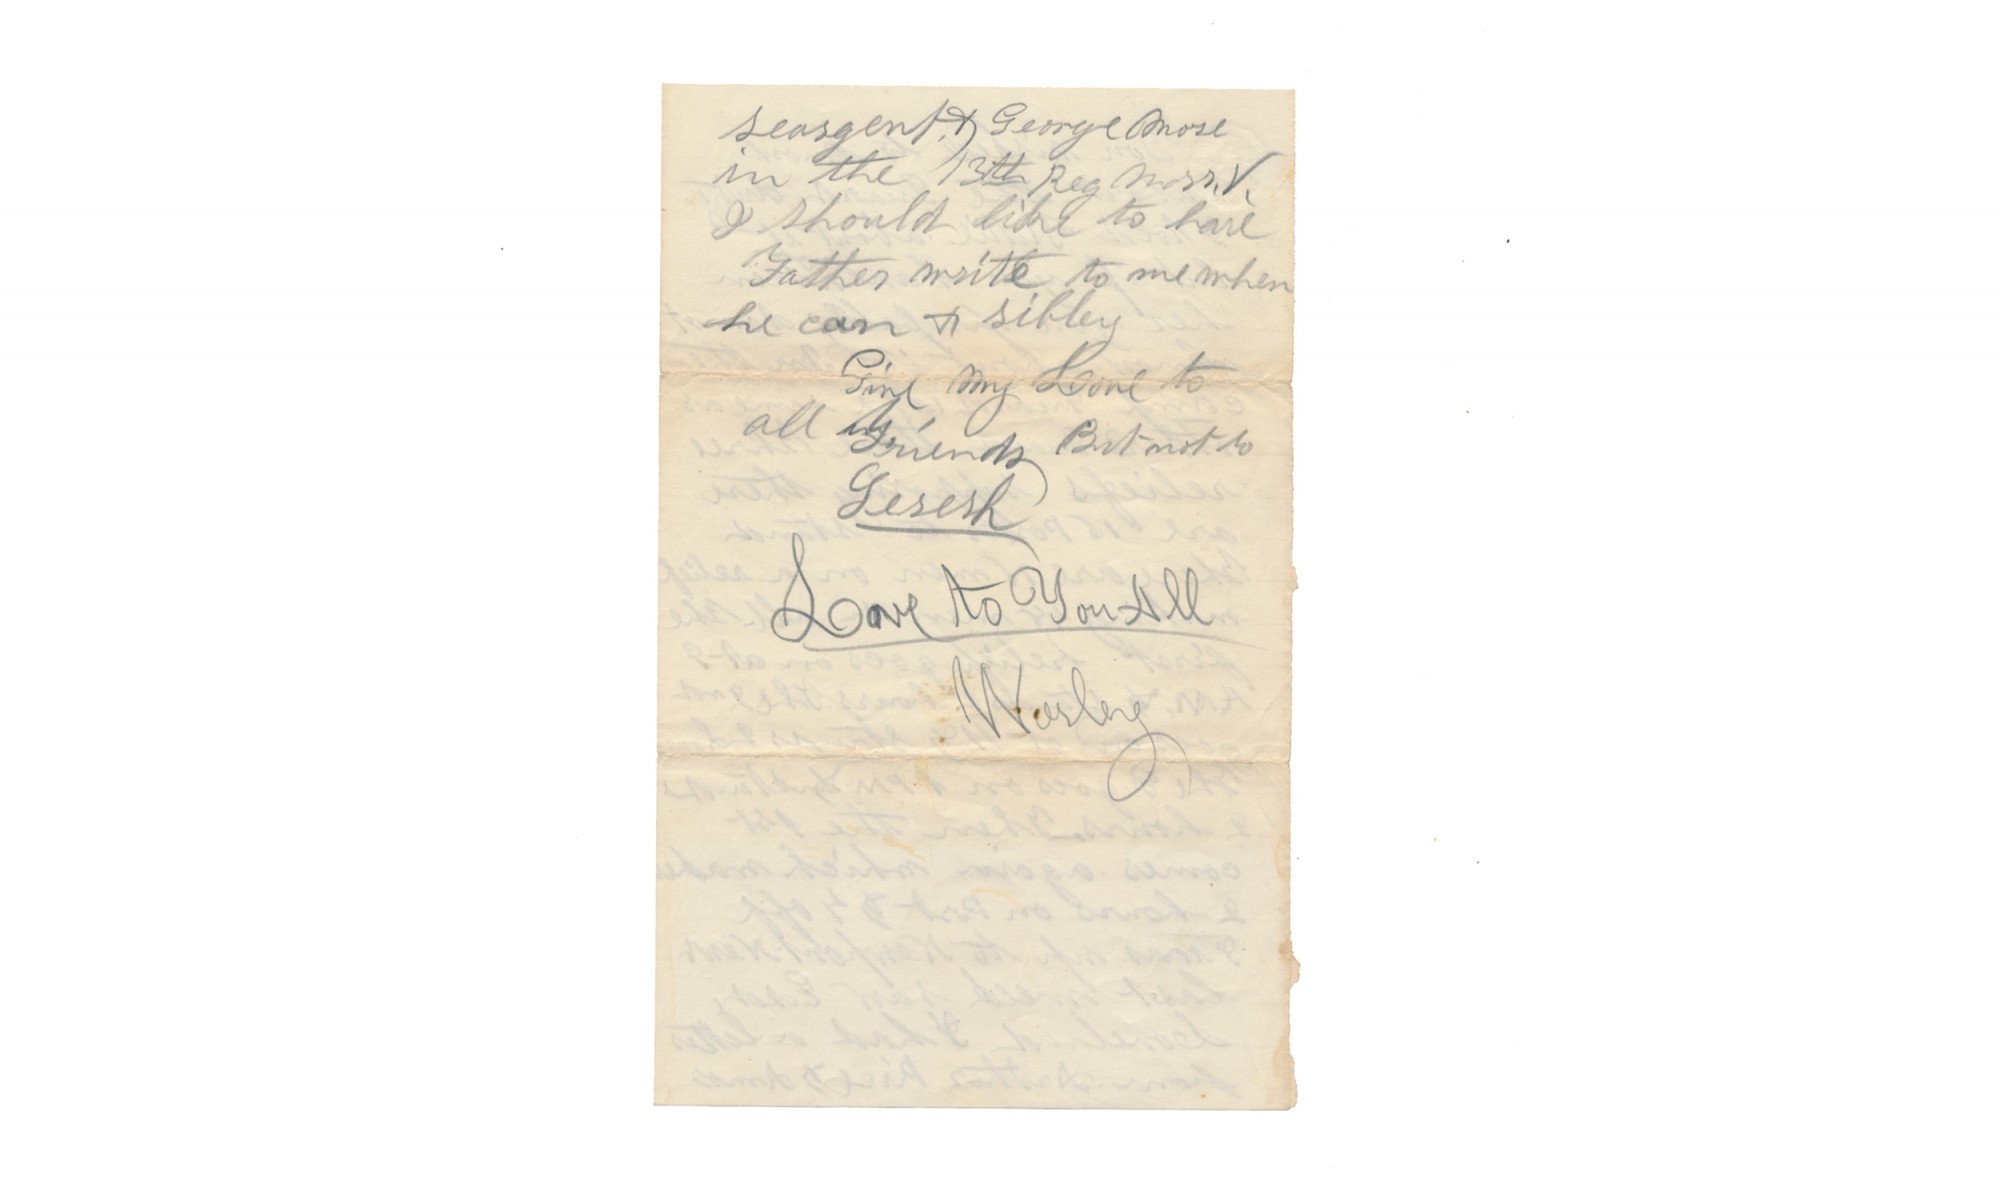 seargent, & George Mose
in the 13th Reg Mass. V.
I should like to have
Father write to me when
he can & sibley
Give My Love to
all
Friends But not to
Sesesh
Love to You All
Wesley